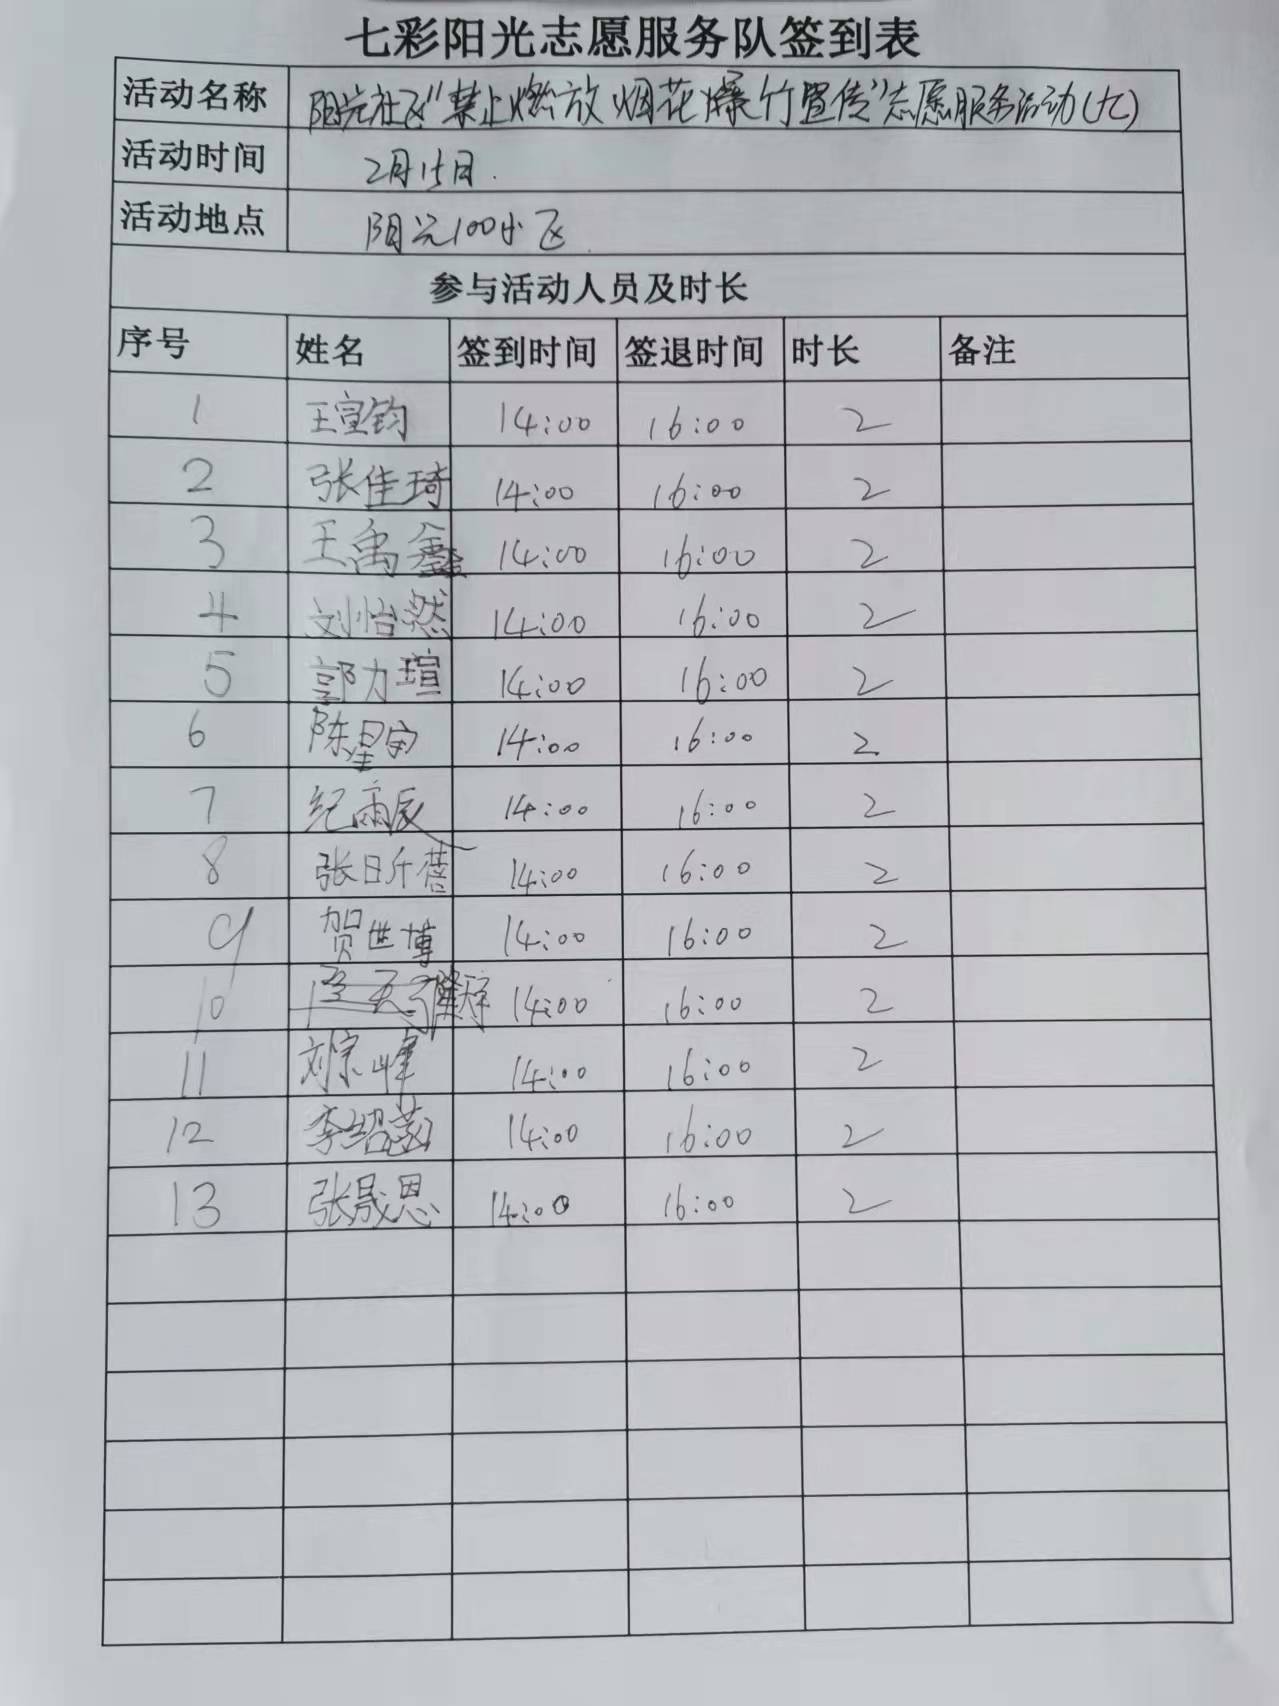 七彩阳光志愿服务队签到表
活动名称 阳光社区“禁止燃放烟花爆竹宣传”志愿服务活动(九)
活动时间 2月15日.
活动地点 阳光100小区
参与活动人员及时长
序号 姓名 签到时间 签退时间 时长 备注
1 王宣钧 14:00 16:00 2
2 张佳琦 14:00 16:00 2
3 王禹鑫 14:00 16:00 2
4 刘怡然 14:00 16:00 2
5 郭力瑄 14:00 16:00 2
6 陈星宇 14:00 16:00 2
7 纪雨辰 14:00 16:00 2
8 张日斤蓓 14:00 16:00 2
9 贺世博 14:00 16:00 2
10 14:00 16:00 2
11 刘宗峰 14:00 16:00 2
12 李绍菡 14:00 16:00 2
13 张晟恩 14:00 16:00 2